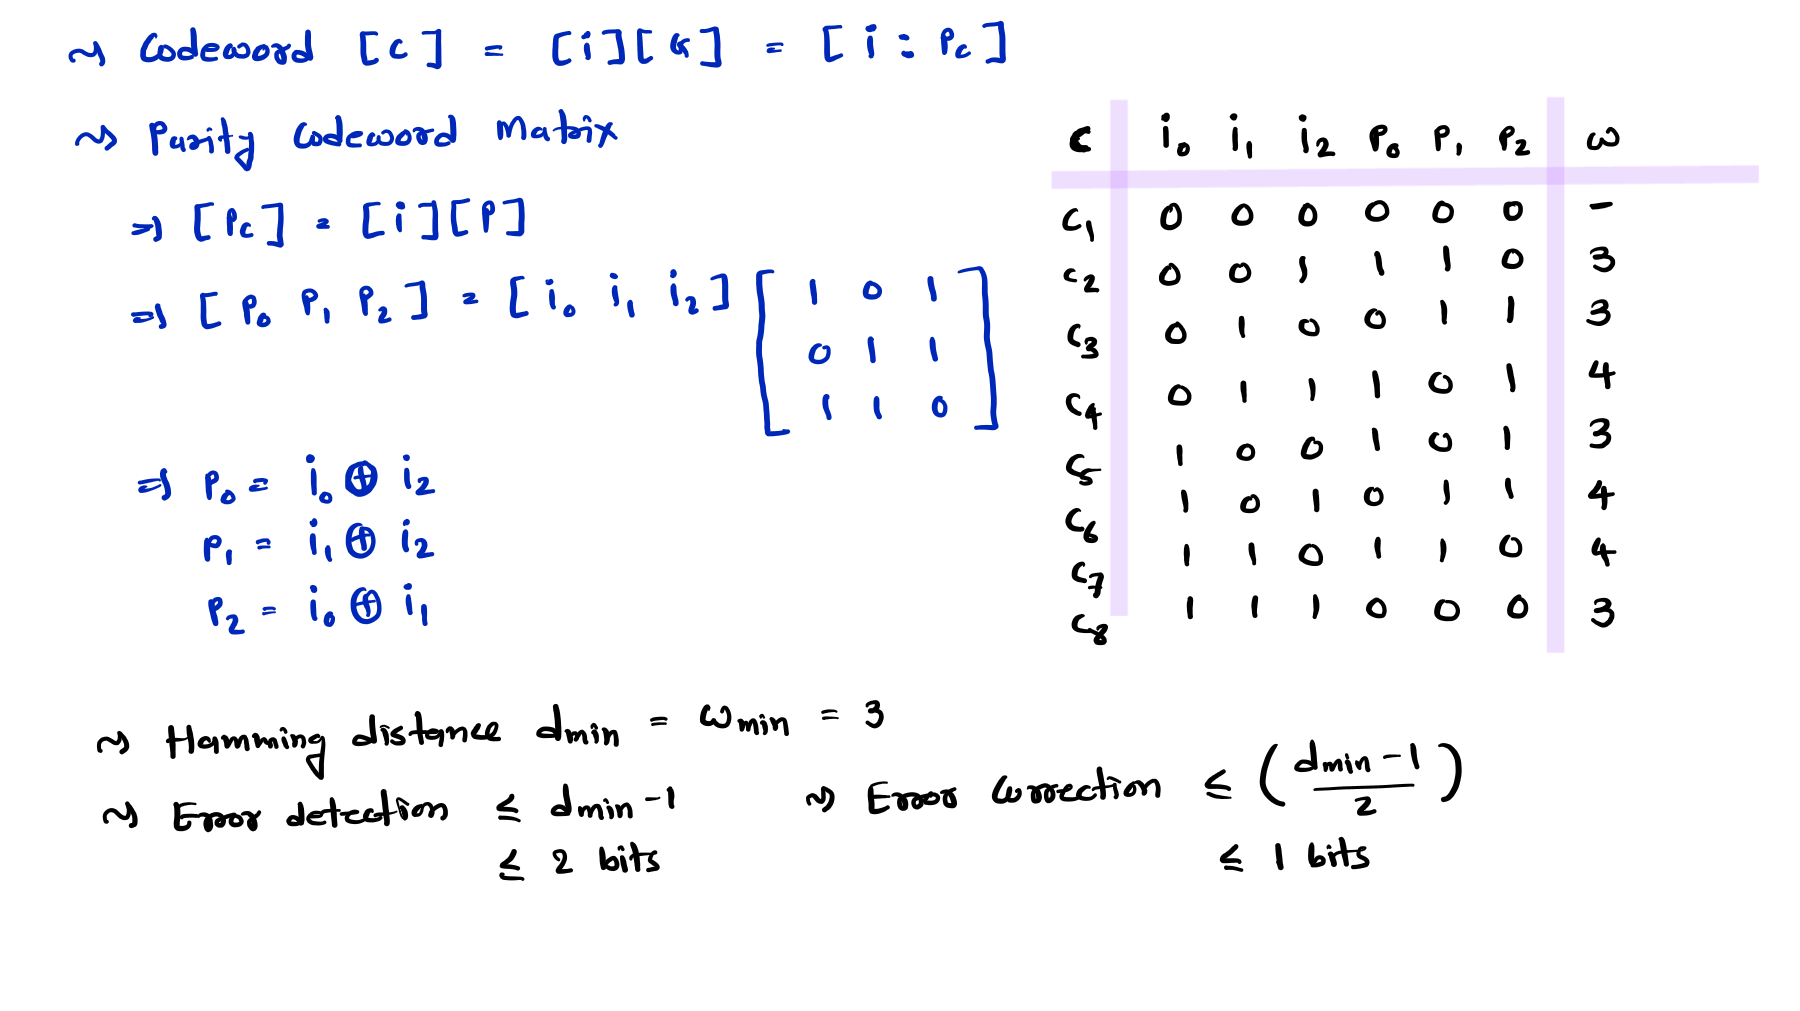 ~> Codeword [C] = [i][G] = [i : Pc]
~> Parity Codeword Matrix
=> [Pc] = [i][P]
=> [P₀ P₁ P₂] = [i₀ i₁ i₂] [1 0 1
0 1 1
1 1 0]
=> P₀ = i₀ ⊕ i₂
P₁ = i₁ ⊕ i₂
P₂ = i₀ ⊕ i₁
C i₀ i₁ i₂ P₀ P₁ P₂ ω
C₁ 0 0 0 0 0 0 -
C₂ 0 0 1 1 1 0 3
C₃ 0 1 0 0 1 1 3
C₄ 0 1 1 1 0 1 4
C₅ 1 0 0 1 0 1 3
C₆ 1 0 1 0 1 1 4
C₇ 1 1 0 1 1 0 4
C₈ 1 1 1 0 0 0 3
~> Hamming distance dmin = ωmin = 3
~> Error detection ≤ dmin - 1
≤ 2 bits
~> Error Correction ≤ (dmin - 1 / 2)
≤ 1 bits